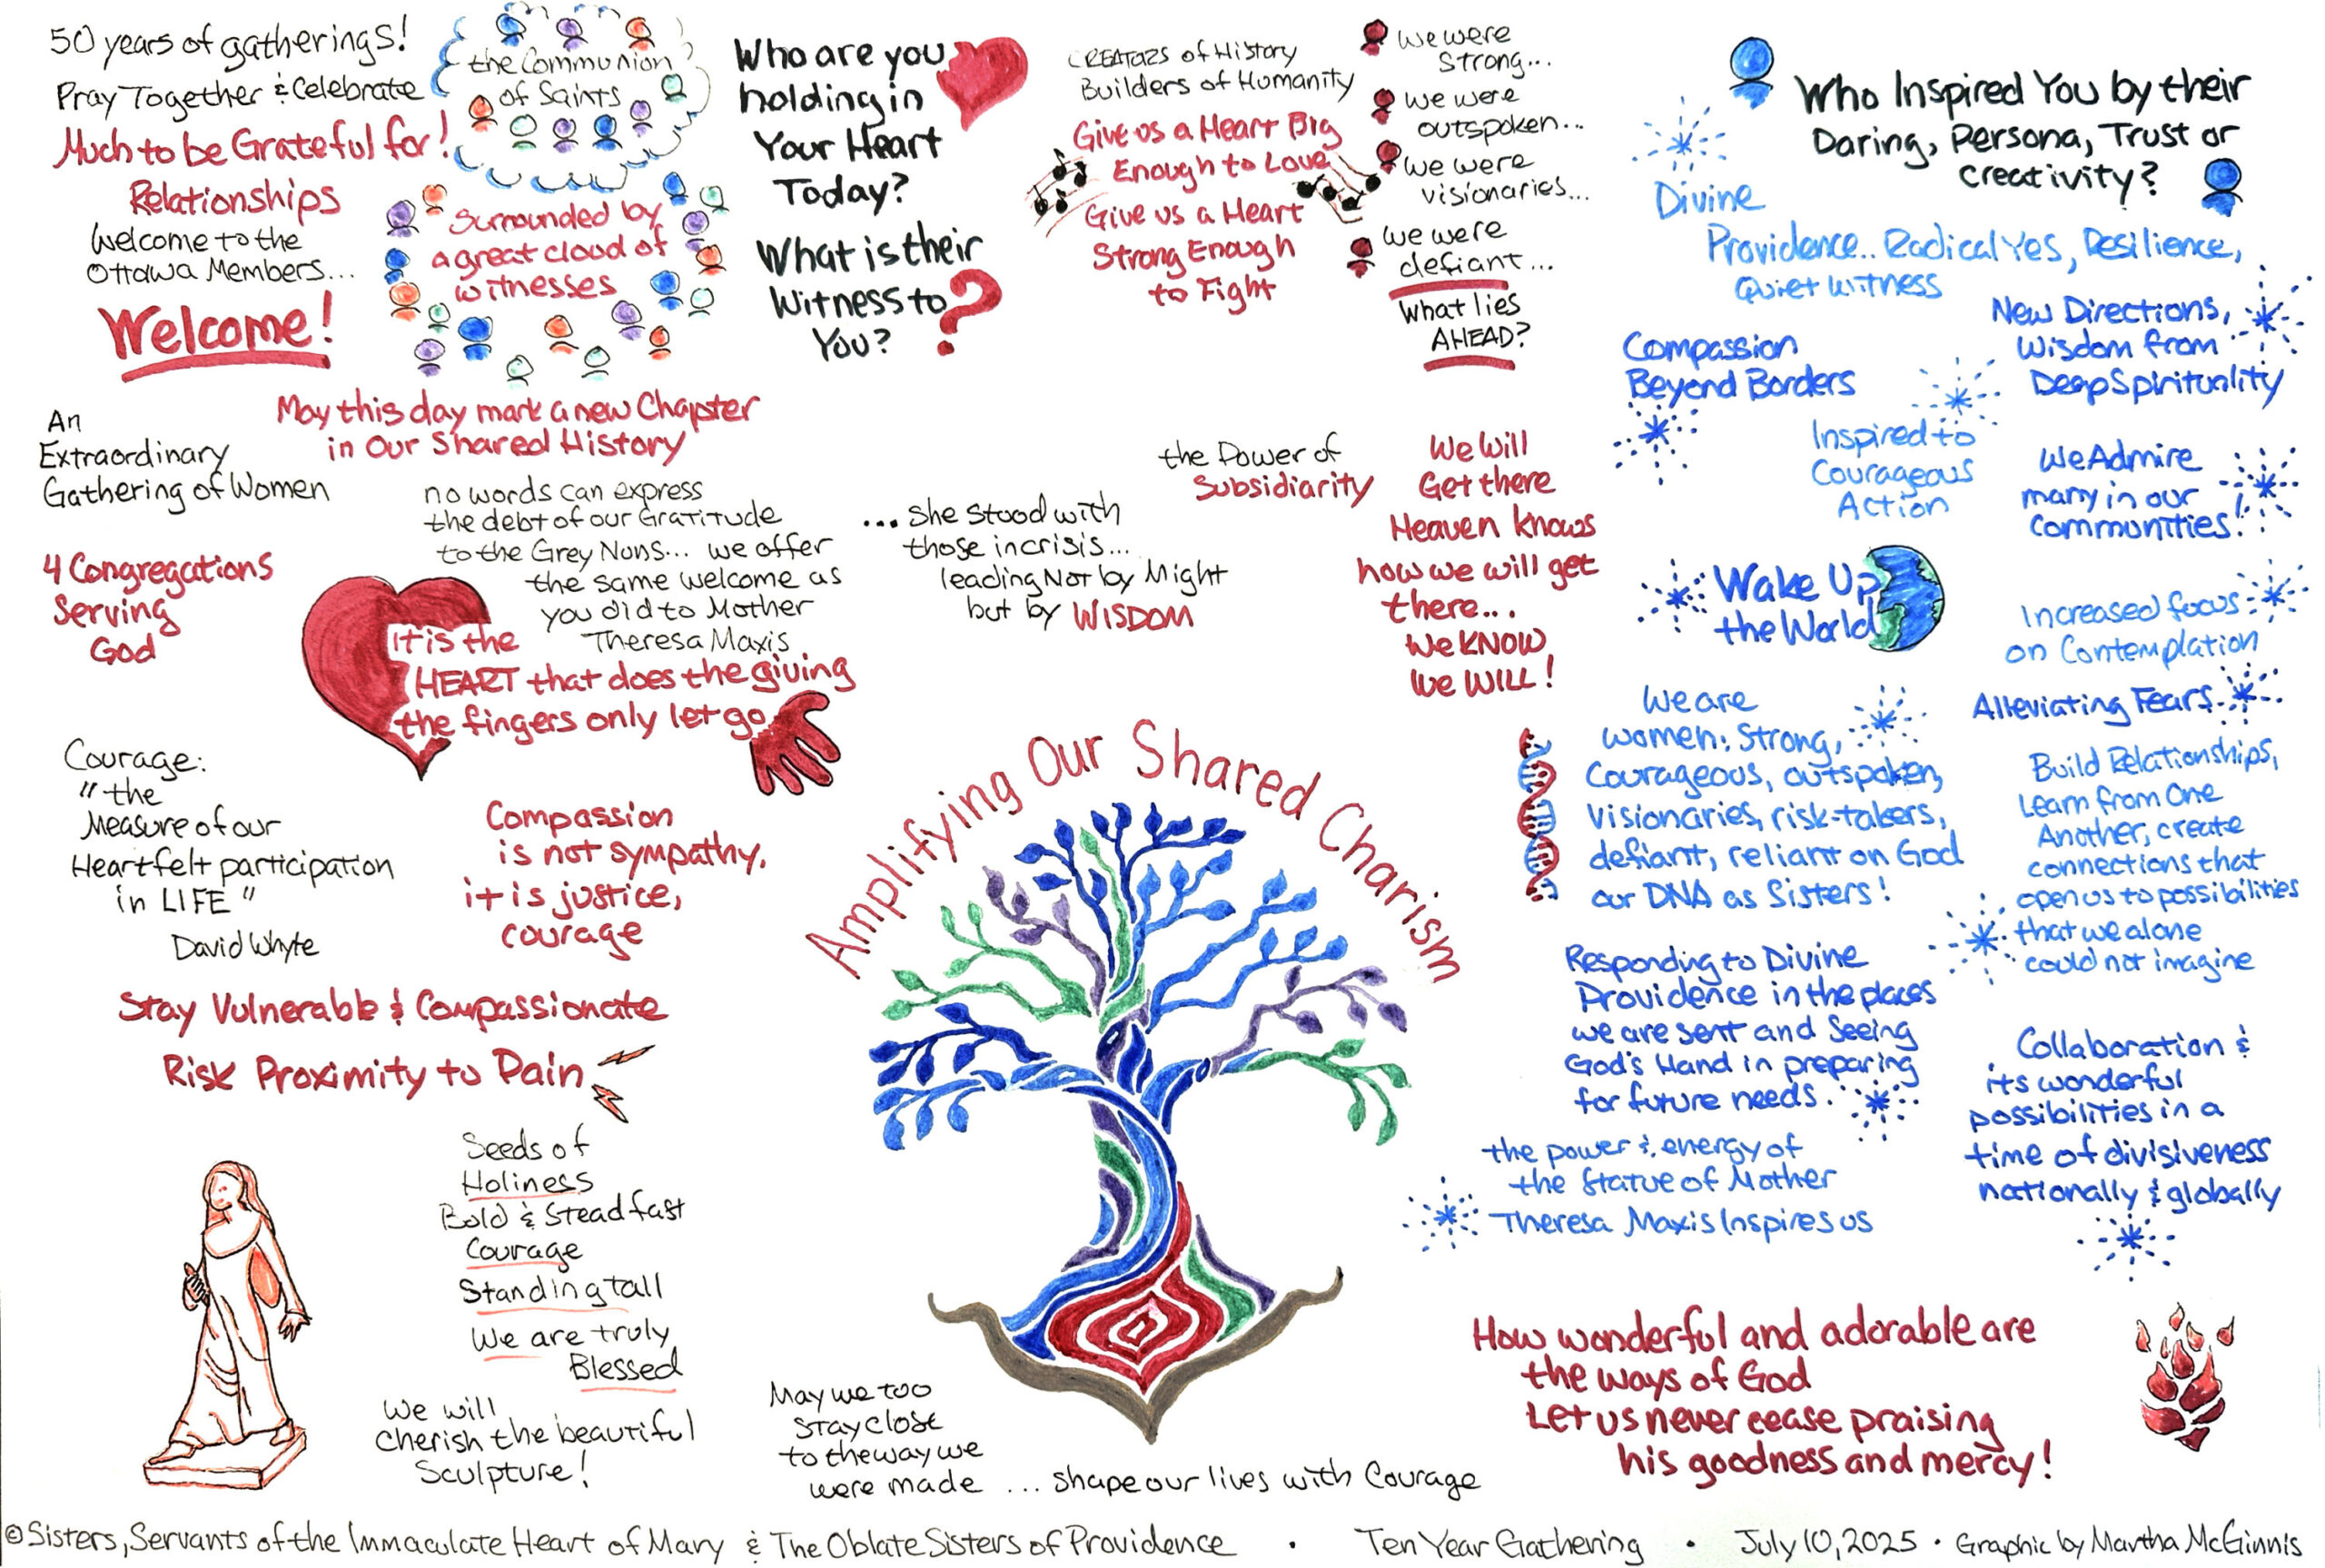 50 years of gatherings!
Pray Together & Celebrate
Much to be Grateful for!
Relationships
Welcome to the
Ottawa Members...
Welcome!
the Communion
of Saints
Surrounded by
a great cloud of
witnesses
May this day mark a new Chapter
in Our Shared History
Who are you
holding in
Your Heart
Today?
What is their
Witness to
You?
CREATORS of History
Builders of Humanity
Give us a Heart Big
Enough to Love
Give us a Heart
Strong Enough
to Fight
We were
Strong...
We were
outspoken...
We were
visionaries...
We were
defiant...
What lies
AHEAD?
Who Inspired You by their
Daring, Persona, Trust or
Creativity?
Divine
Providence.. Radical Yes, Resilience,
Quiet Witness
Compassion
Beyond Borders
New Directions,
Wisdom from
Deep Spirituality
Inspired to
Courageous
Action
We Admire
many in our
Communities!
Wake Up
the World
Increased focus
on Contemplation
Alleviating Fears
An
Extraordinary
Gathering of Women
4 Congregations
Serving
God
no words can express
the debt of our Gratitude
to the Grey Nuns... we offer
the same welcome as
you did to Mother
Theresa Maxis
It is the
HEART that does the giving
the fingers only let go
... She stood with
those in crisis...
leading Not by Might
but by WISDOM
the Power of
Subsidiarity
We Will
Get there
Heaven knows
how we will get
there...
We KNOW
We WILL!
Courage:
"the
Measure of our
Heartfelt participation
in LIFE"
David Whyte
Compassion
is not sympathy,
it is justice,
courage
Stay Vulnerable & Compassionate
Risk Proximity to Pain
Seeds of
Holiness
Bold & Steadfast
Courage
Standing tall
We are truly
Blessed
We will
Cherish the beautiful
Sculpture!
Amplifying Our Shared Charism
May we too
stay close
to the way we
were made ... shape our lives with Courage
We are
women: Strong,
Courageous, outspoken,
visionaries, risk-takers,
defiant, reliant on God
our DNA as Sisters!
Build Relationships,
Learn from One
Another, create
connections that
open us to possibilities
that we alone
could not imagine
Responding to Divine
Providence in the places
we are sent and Seeing
God's Hand in preparing
for future needs.
Collaboration &
its wonderful
possibilities in a
time of divisiveness
nationally & globally
the power & energy of
the Statue of Mother
Theresa Maxis Inspires us
How wonderful and adorable are
the ways of God
Let us never cease praising
his goodness and mercy!
© Sisters, Servants of the Immaculate Heart of Mary & The Oblate Sisters of Providence • Ten Year Gathering • July 10, 2025 • Graphic by Martha McGinnis